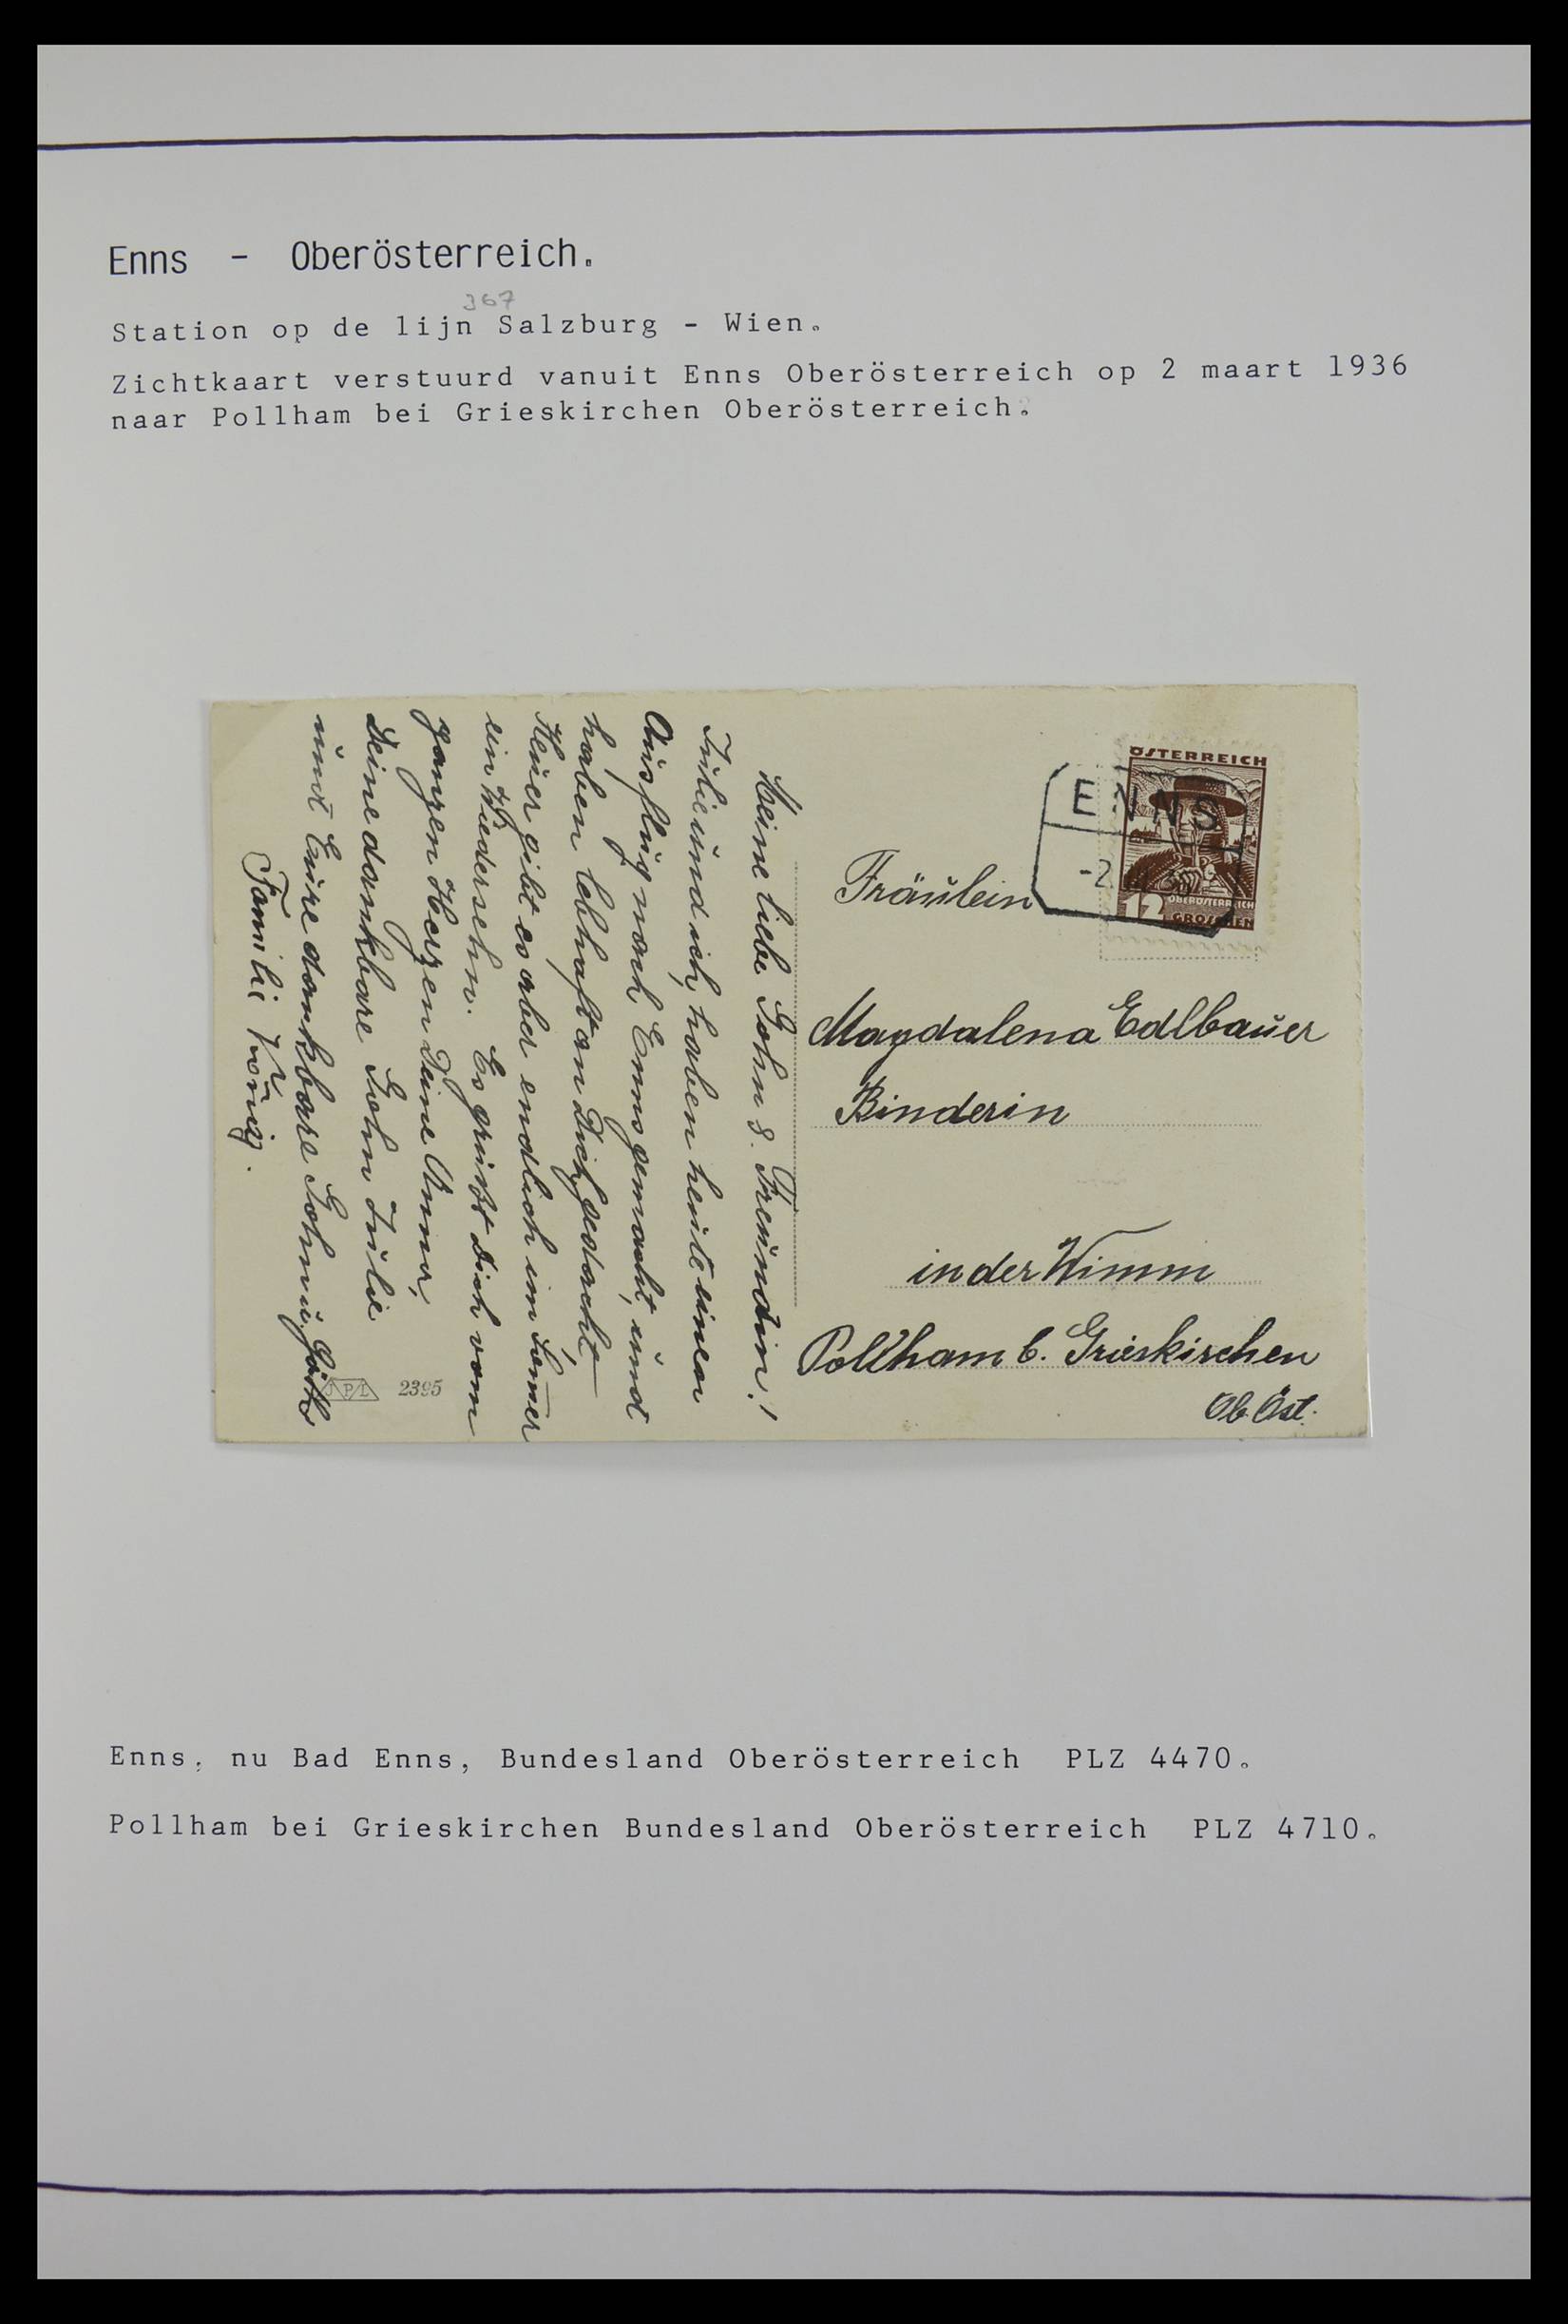 Enns - Oberösterreich.
367
Station op de lijn Salzburg - Wien.
Zichtkaart verstuurd vanuit Enns Oberösterreich op 2 maart 1936
naar Pollham bei Grieskirchen Oberösterreich.
Meine liebe Gohn s. Freundin!
Julie und ich, haben heute einen
Ausflug nach Enns gemacht, und
haben lebhaft an Dich gedacht
Heuer gibt es aber endlich im Somer
ein Wiedersehn. Es grüßt Dich vom
ganzen Herzen Deine Anna,
Deine dankbare Gohn Julie
und Eure dankbare Gohn u.
Familie König.
ÖSTERREICH
OBERÖSTERREICH
12 GROSCHEN
ENNS
-2
Fräulein
Magdalena Edlbauer
Binderin
in der Wimm
Pollham b. Grieskirchen
Ob. Öst.
JPL 2395
Enns, nu Bad Enns, Bundesland Oberösterreich PLZ 4470.
Pollham bei Grieskirchen Bundesland Oberösterreich PLZ 4710.